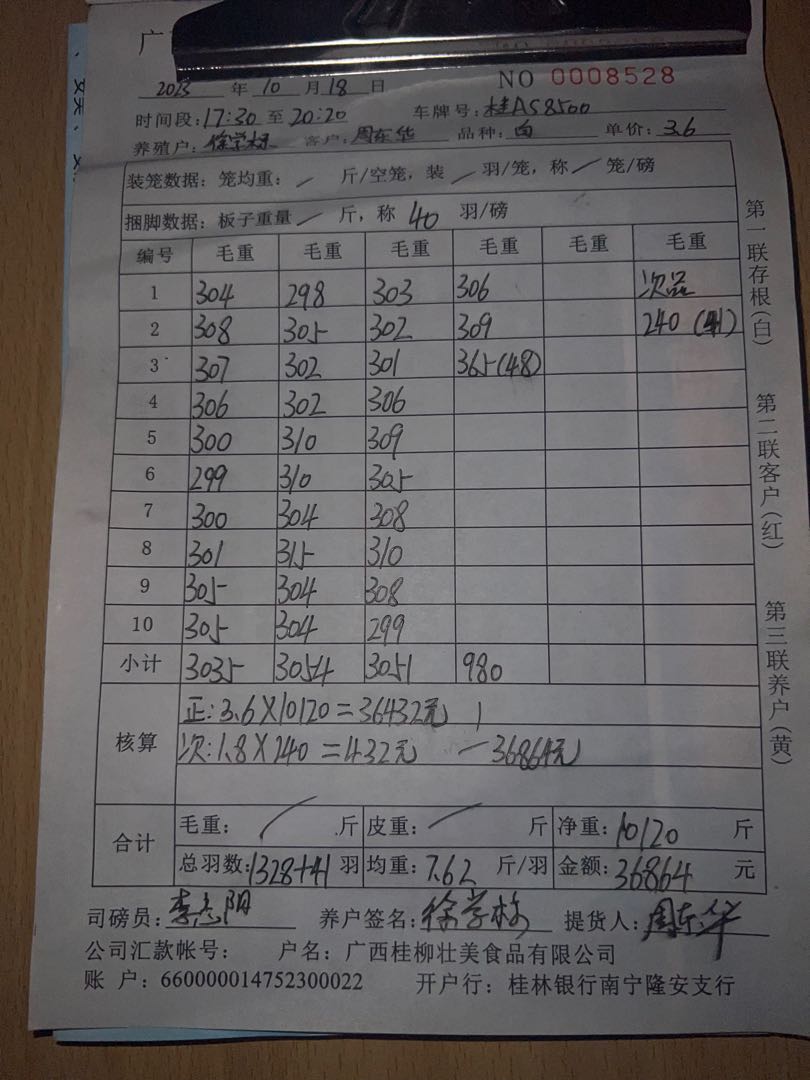 广
2023 年 10 月 18 日 NO 0008528
时间段:17:30 至 20:20 车牌号:桂AS8500
养殖户:徐学标 客户:周东华 品种:白 单价:3.6
装笼数据:笼均重:/ 斤/空笼,装 / 羽/笼,称 / 笼/磅
捆脚数据:板子重量 / 斤,称 40 羽/磅
编号 毛重 毛重 毛重 毛重 毛重 毛重
1 304 298 303 306 次品
2 308 305 302 309 240 (41)
3 307 302 301 365(48)
4 306 302 306
5 300 310 309
6 299 310 305
7 300 304 308
8 301 315 310
9 305 304 308
10 305 304 299
小计 3035 3054 3051 980
核算
正:3.6×10120=36432元
次:1.8×240=432元 — 36864元
合计
毛重: / 斤 皮重: / 斤 净重:10120 斤
总羽数:1328+41 羽 均重:7.62 斤/羽 金额:36864 元
司磅员:李志阳 养户签名:徐学标 提货人:周东华
公司汇款帐号: 户名:广西桂柳壮美食品有限公司
账 户:660000014752300022 开户行:桂林银行南宁隆安支行
第一联存根(白)
第二联客户(红)
第三联养户(黄)